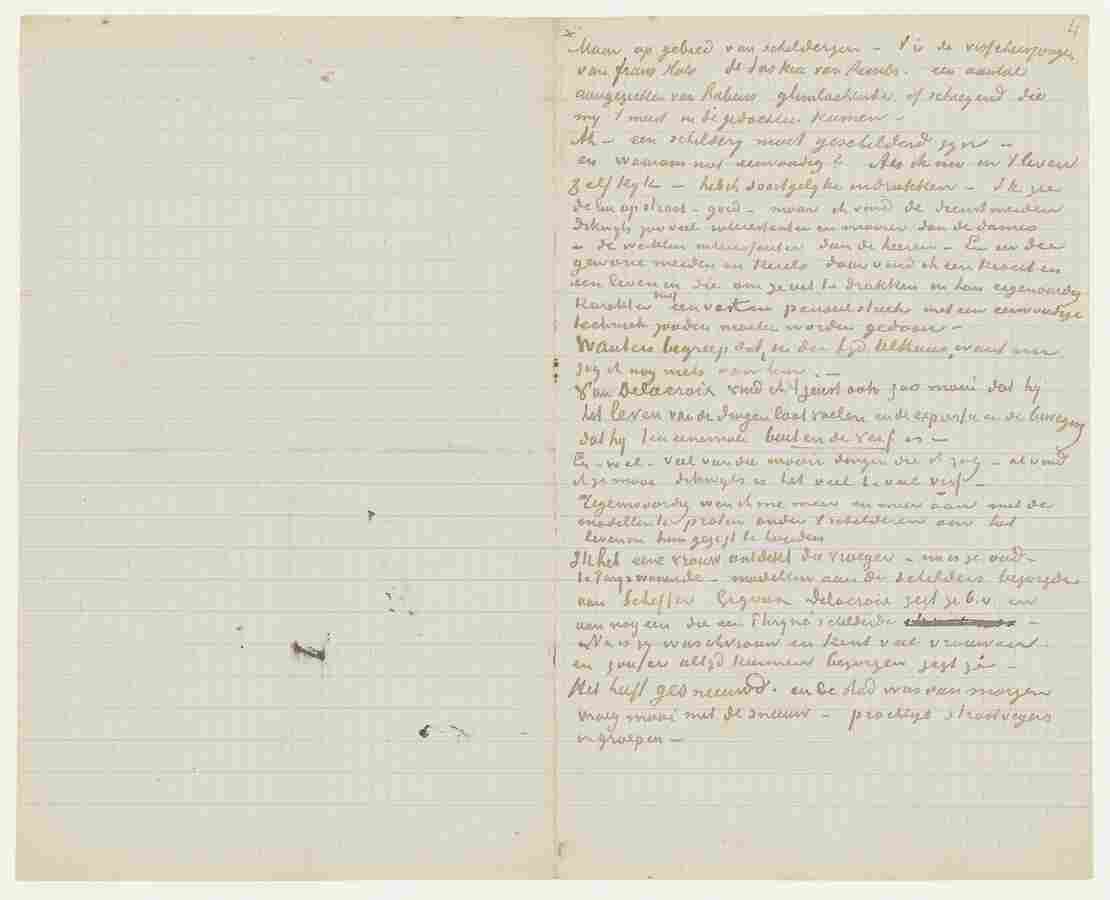 4
Maar op gebied van schilderyen – 't is de visschersjongen
van frans Hals de Saskia van Rembr. een aantal
aangezichten van Rubens glimlachende of schreyend die
my 't meest in de gedachten komen –
Ah – een schildery moet geschilderd zyn –
en waarom niet eenvoudig? Als ik nu in 't leven
zelf kyk – heb ik soortgelyke indrukken – Ik zie
de lui op straat – goed – maar ik vind de dienstmeiden
dikwyls zooveel interessanter en mooier dan de dames
de werklui interessanter dan de heeren – En in die
gewone meiden en kerels daar vind ik een kracht en
een leven in die om ze uit te drukken in hun eigenaardig
karakter met een vasten penseelstreek met een eenvoudige
techniek zouden moeten worden gedaan –
Wauters begreep dat, in der tyd althans, want nu
zag ik nog niets van hem. –
Van Delacroix vind ik 't juist ook zoo mooi dat hy
het leven van de dingen laat voelen en de expressie en de beweging
dat hy ten eenemale buiten de verf is –
En – wel – veel van die mooie dingen die ik zag – al vond
ik ze mooi dikwyls is het veel te veel verf –
Tegenwoordig wen ik me meer en meer aan met de
modellen te praten onder 't schilderen om het
leven in hun gezigt te houden
Ik heb eene vrouw ontdekt die vroeger – nu is ze oud –
te Parys woonde – modellen aan de schilders bezorgde
van Scheffer Gigoux Delacroix zegt ze b.v. en
aan nog een die een Phryné schilderde –
Nu is zy waschvrouw en kent veel vrouwen
en zou er altyd kunnen bezorgen zegt ze –
Het heeft gesneeuwd. en de stad was van morgen
vroeg mooi met de sneeuw – prachtige straatvegers
in groepen –